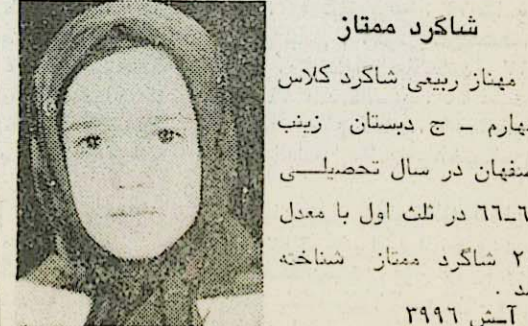 شاگرد ممتاز
مهناز ربیعی شاگرد کلاس
هارم – ج دبستان زینب
صفهان در سال تحصیلی
٦-٦٦ در ثلث اول با معدل
٢ شاگرد ممتاز شناخته
د .
آ-ش ٣٩٩٦